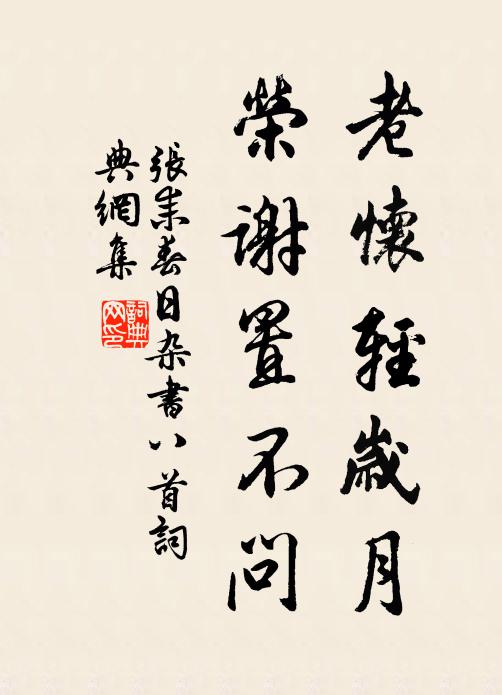 老懷輕歲月
榮謝置不問
張耒春日杂書八首詞
典網集
詞典
网印